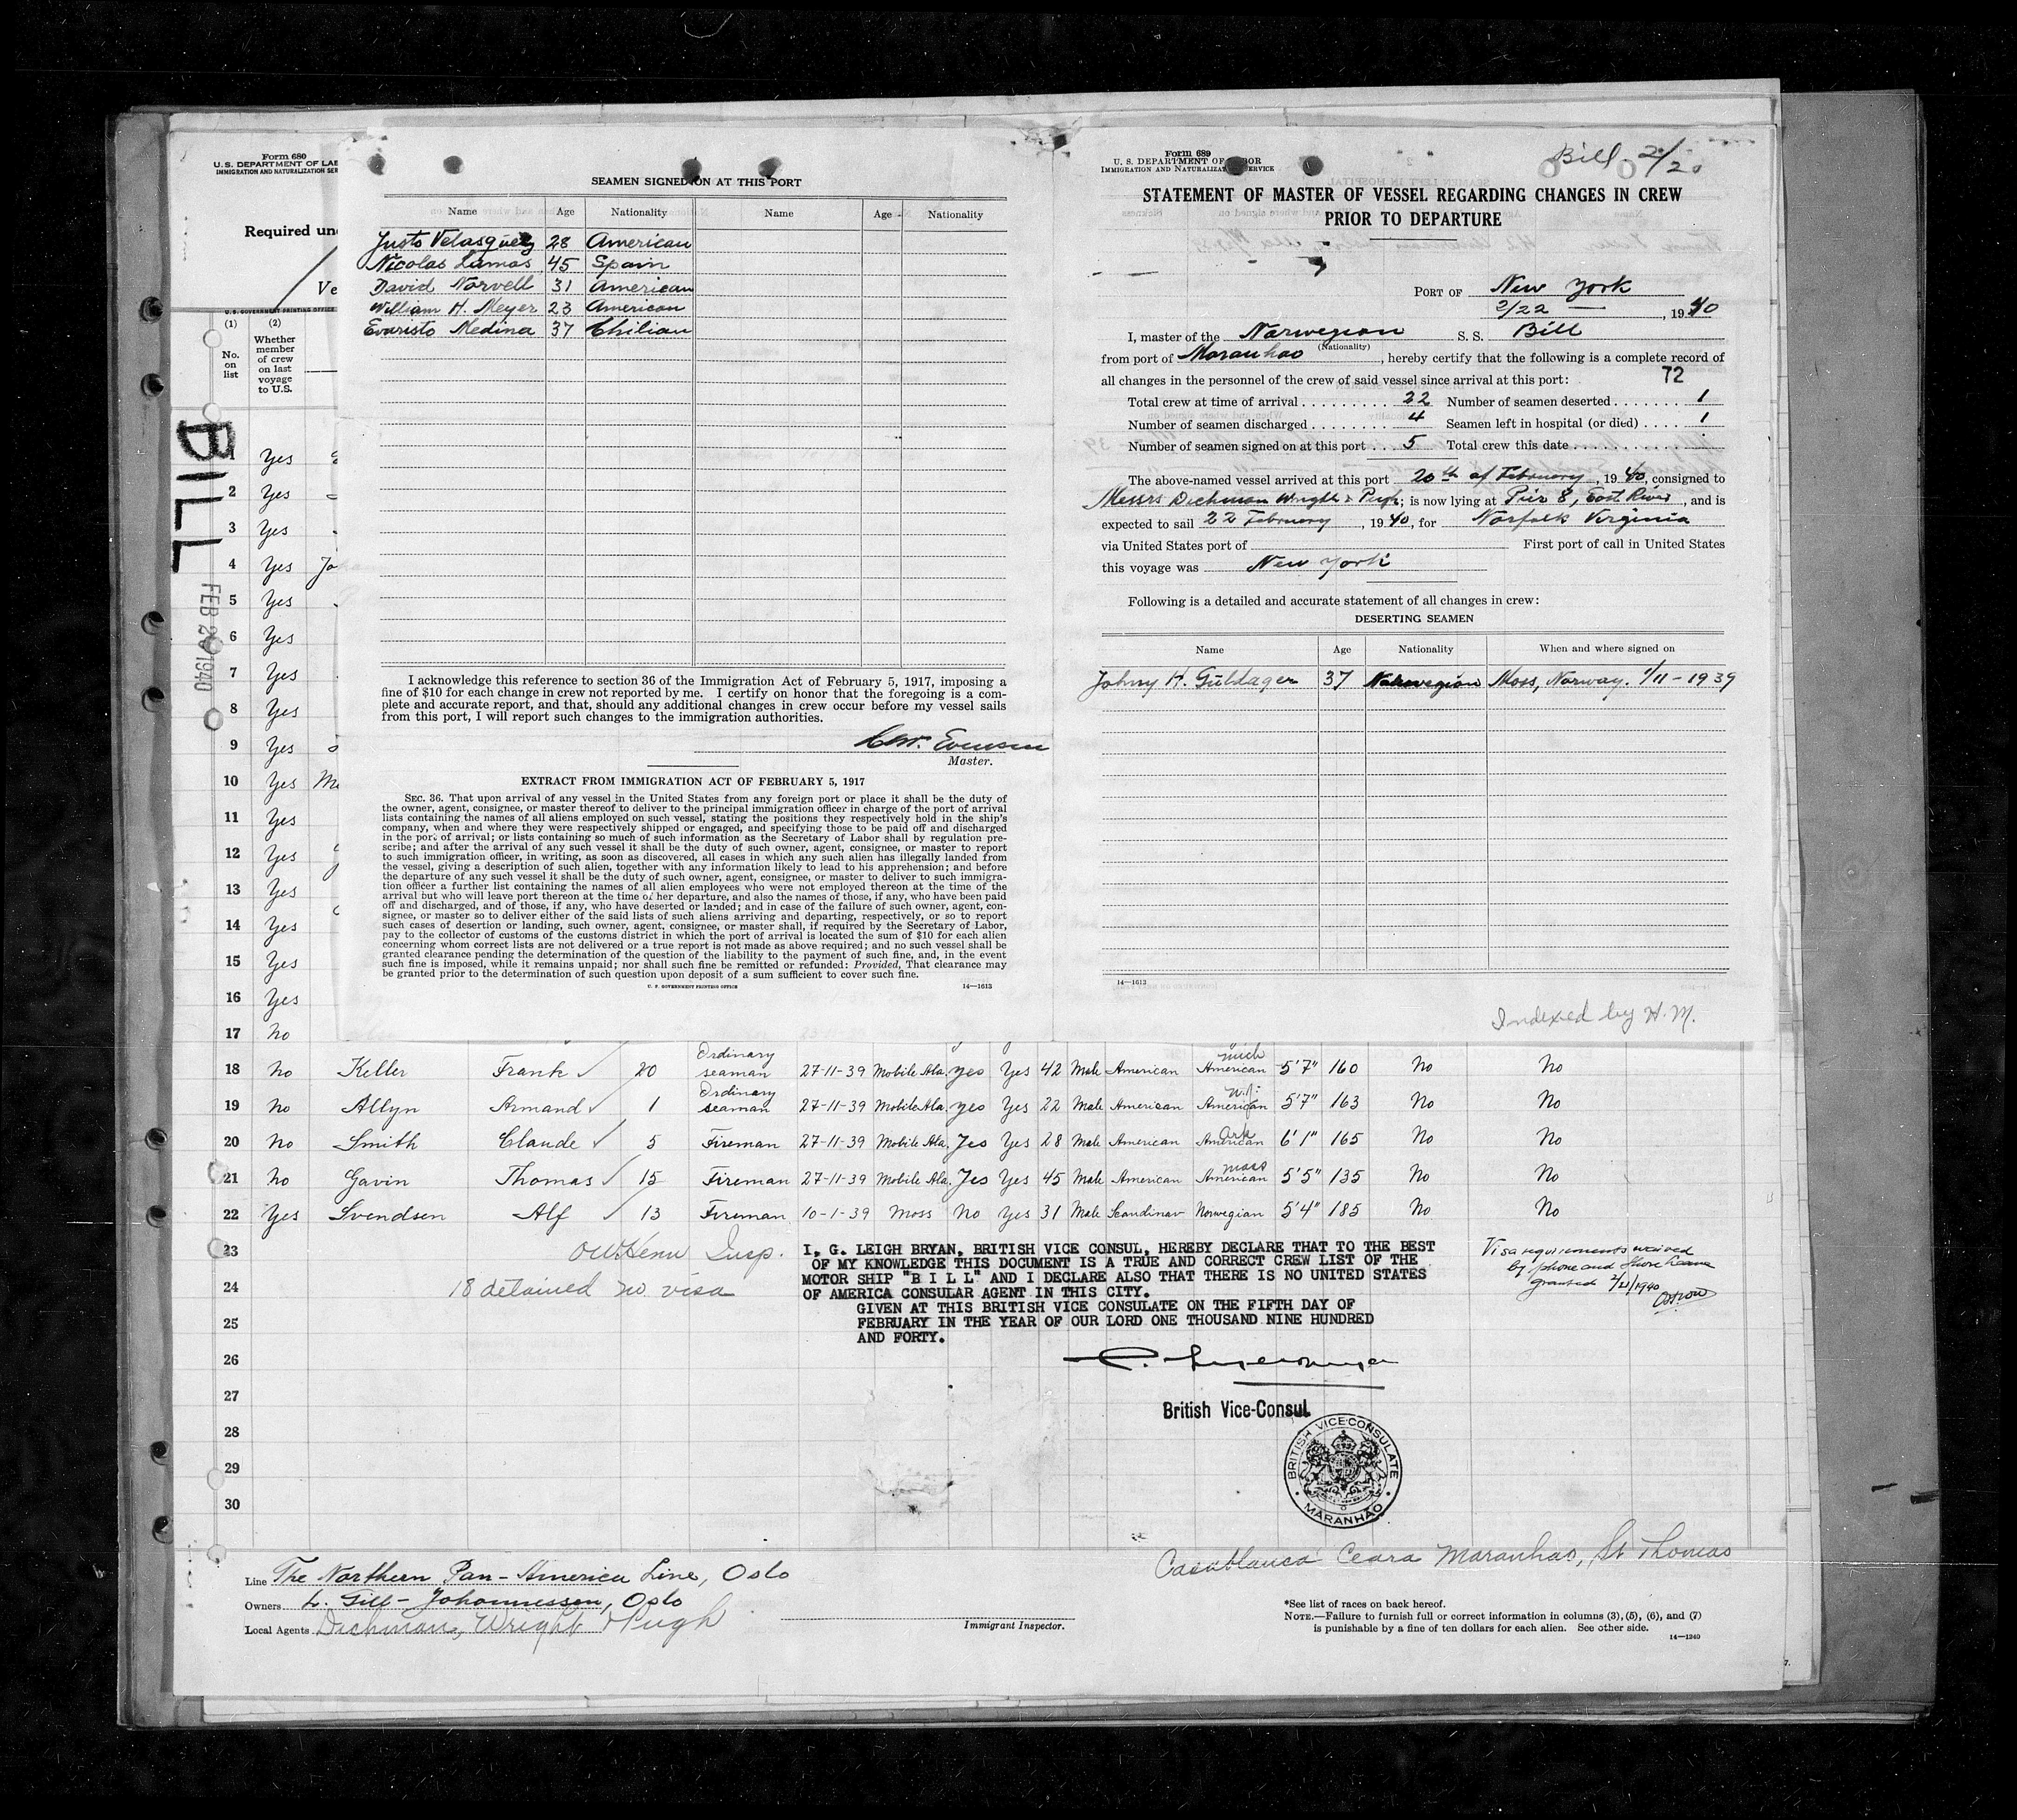 Form 680
U. S. DEPARTMENT OF LAB
IMMIGRATION AND NATURALIZATION SER
Required un
Ve
U. S. GOVERNMENT PRINTING OFFICE
(1) (2)
No. on list
Whether member of crew on last voyage to U.S.
BILL
FEB 20 1940
1 Yes
2 Yes
3 Yes
4 Yes Jo
5 Yes
6 Yes
7 Yes
8 Yes
9 Yes
10 Yes
11 Yes
12 Yes
13 Yes
14 Yes
15 Yes
16 Yes
17 No
SEAMEN SIGNED ON AT THIS PORT
Name Age Nationality Name Age Nationality
Justo Velasquez 28 American
Nicolas Lamas 45 Spain
David Norvell 31 American
William H. Meyer 23 American
Evaristo Medina 37 Chilian
I acknowledge this reference to section 36 of the Immigration Act of February 5, 1917, imposing a
fine of $10 for each change in crew not reported by me. I certify on honor that the foregoing is a com-
plete and accurate report, and that, should any additional changes in crew occur before my vessel sails
from this port, I will report such changes to the immigration authorities.
Evensen
Master.
EXTRACT FROM IMMIGRATION ACT OF FEBRUARY 5, 1917
SEC. 36. That upon arrival of any vessel in the United States from any foreign port or place it shall be the duty of
the owner, agent, consignee, or master thereof to deliver to the principal immigration officer in charge of the port of arrival
lists containing the names of all aliens employed on such vessel, stating the positions they respectively hold in the ship's
company, when and where they were respectively shipped or engaged, and specifying those to be paid off and discharged
in the port of arrival; or lists containing so much of such information as the Secretary of Labor shall by regulation pre-
scribe; and after the arrival of any such vessel it shall be the duty of such owner, agent, consignee, or master to report
to such immigration officer, in writing, as soon as discovered, all cases in which any such alien has illegally landed from
the vessel, giving a description of such alien, together with any information likely to lead to his apprehension; and before
the departure of any such vessel it shall be the duty of such owner, agent, consignee, or master to deliver to such immigra-
tion officer a further list containing the names of all alien employees who were not employed thereon at the time of the
arrival but who will leave port thereon at the time of her departure, and also the names of those, if any, who have been paid
off and discharged, and of those, if any, who have deserted or landed; and in case of the failure of such owner, agent, con-
signee, or master so to deliver either of the said lists of such aliens arriving and departing, respectively, or so to report
such cases of desertion or landing, such owner, agent, consignee, or master shall, if required by the Secretary of Labor,
pay to the collector of customs of the customs district in which the port of arrival is located the sum of $10 for each alien
concerning whom correct lists are not delivered or a true report is not made as above required; and no such vessel shall be
granted clearance pending the determination of the question of the liability to the payment of such fine, and, in the event
such fine is imposed, while it remains unpaid; nor shall such fine be remitted or refunded: Provided, That clearance may
be granted prior to the determination of such question upon deposit of a sum sufficient to cover such fine.
U. S. GOVERNMENT PRINTING OFFICE 14—1613
Form 689
U. S. DEPARTMENT OF LABOR
IMMIGRATION AND NATURALIZATION SERVICE
Bill 2/20
STATEMENT OF MASTER OF VESSEL REGARDING CHANGES IN CREW
PRIOR TO DEPARTURE
PORT OF New York
2/22, 1940
I, master of the Norwegian S. S. Bill
(Nationality)
from port of Maranhao, hereby certify that the following is a complete record of
all changes in the personnel of the crew of said vessel since arrival at this port:
72
Total crew at time of arrival 22 Number of seamen deserted 1
Number of seamen discharged 4 Seamen left in hospital (or died) 1
Number of seamen signed on at this port 5 Total crew this date
The above-named vessel arrived at this port 20th of February, 1940, consigned to
Messrs Dichman Wright & Pugh; is now lying at Pier 8, East River, and is
expected to sail 22 February, 1940, for Norfolk Virginia
via United States port of First port of call in United States
this voyage was New York
Following is a detailed and accurate statement of all changes in crew:
DESERTING SEAMEN
Name Age Nationality When and where signed on
Johny H. Guldager 37 Norwegian Moss, Norway. 1/11-1939
14—1613
Indexed by H. M.
18 No Keller Frank ✓ 20 Ordinary seaman 27-11-39 Mobile Ala. Yes Yes 42 Male American American Mich 5'7" 160 No No
19 No Allyn Armand ✓ 1 Ordinary seaman 27-11-39 Mobile Ala. Yes Yes 22 Male American American N.J. 5'7" 163 No No
20 No Smith Claude ✓ 5 Fireman 27-11-39 Mobile Ala. Yes Yes 28 Male American American Ark 6'1" 165 No No
21 No Gavin Thomas ✓ 15 Fireman 27-11-39 Mobile Ala. Yes Yes 45 Male American American Mass 5'5" 135 No No
22 Yes Svendsen Alf ✓ 13 Fireman 10-1-39 Moss No Yes 31 Male Scandinav Norwegian 5'4" 185 No No
23 Insp.
24 18 detained no visa
25
26
27
28
29
30
I, G. LEIGH BRYAN, BRITISH VICE CONSUL, HEREBY DECLARE THAT TO THE BEST
OF MY KNOWLEDGE THIS DOCUMENT IS A TRUE AND CORRECT CREW LIST OF THE
MOTOR SHIP "B I L L" AND I DECLARE ALSO THAT THERE IS NO UNITED STATES
OF AMERICA CONSULAR AGENT IN THIS CITY.
GIVEN AT THIS BRITISH VICE CONSULATE ON THE FIFTH DAY OF
FEBRUARY IN THE YEAR OF OUR LORD ONE THOUSAND NINE HUNDRED
AND FORTY.
Visa requirements waived
by phone and shore leave
granted 2/21/1940
British Vice-Consul
BRITISH VICE-CONSULATE
MARANHÃO
Casablanca Ceara Maranhao, St Thomas
Line The Northern Pan-America Line, Oslo
Owners L. Gill-Johannessen, Oslo
Local Agents Dichman, Wright & Pugh
Immigrant Inspector.
*See list of races on back hereof.
NOTE.—Failure to furnish full or correct information in columns (3), (5), (6), and (7)
is punishable by a fine of ten dollars for each alien. See other side.
14—1240